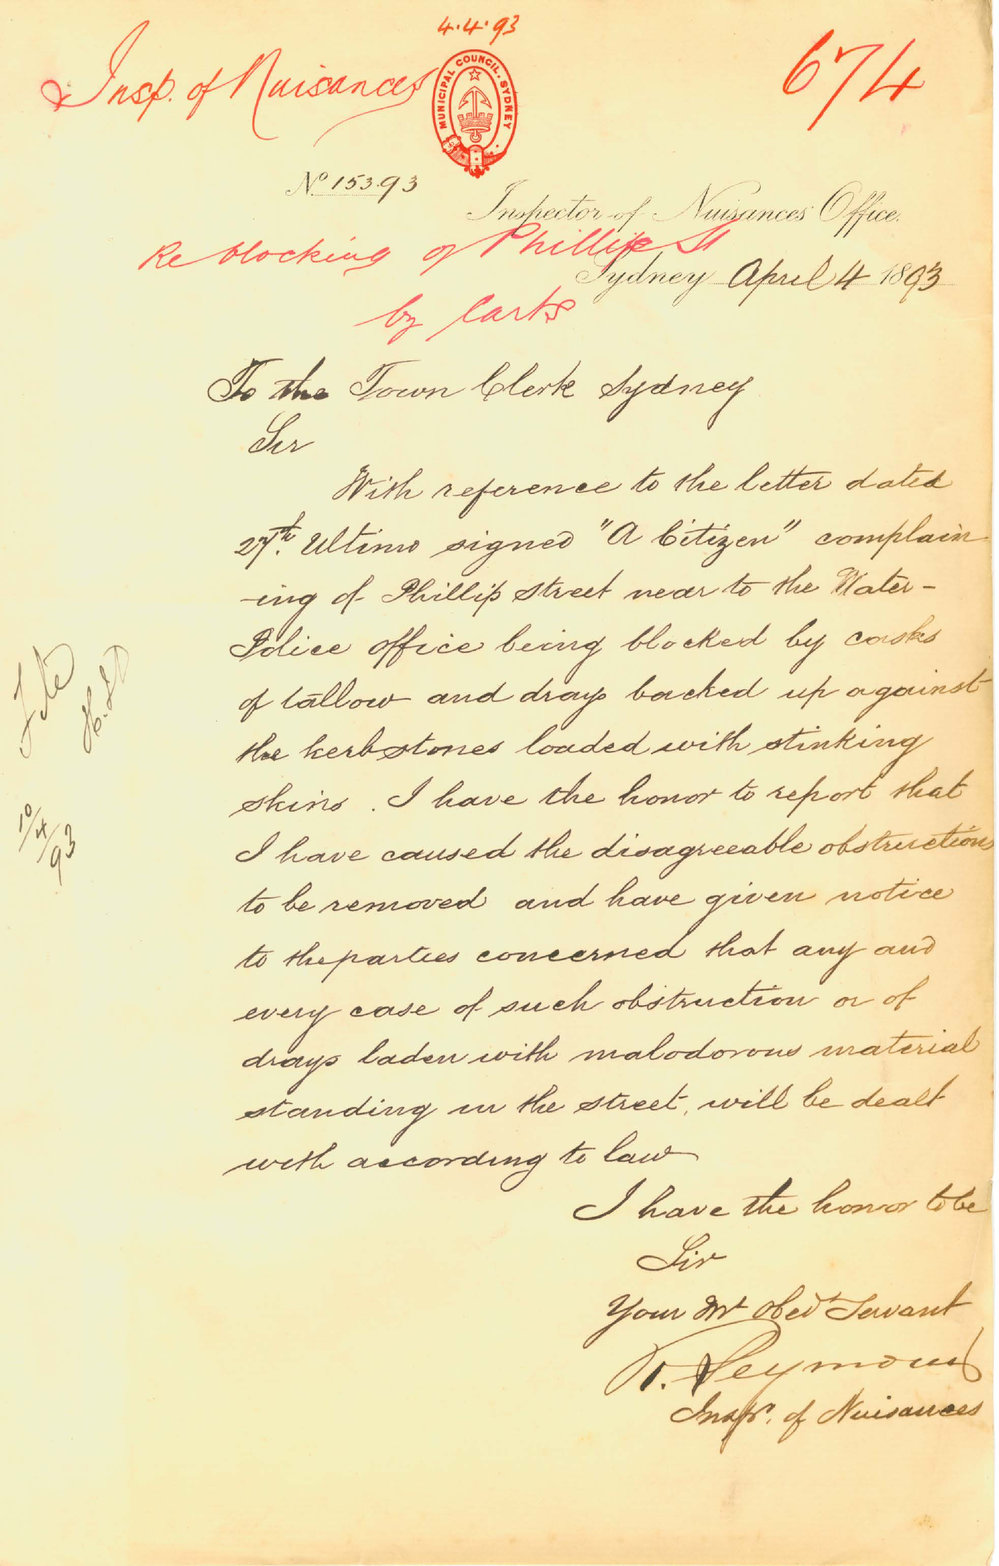 4.4.93
Insp. of Nuisances
MUNICIPAL COUNCIL. SYDNEY
674
No 153.93
Inspector of Nuisances Office.
Re blocking of Phillip St
Sydney April 4 1893
by Carts
To the Town Clerk Sydney
Sir
With reference to the letter dated
27th. Ultimo signed "A Citizen" complain-
-ing of Phillip Street near to the Water-
Police office being blocked by casks
of tallow and drays backed up against
the kerbstones loaded with stinking
skins. I have the honor to report that
I have caused the disagreeable obstruction
to be removed and have given notice
to the parties concerned that any and
every case of such obstruction or of
drays laden with malodorous material
standing in the street, will be dealt
with according to law
I have the honor to be
Sir
Your Mt Obedt Servant
Seymour
Inspr. of Nuisances
File
10/4/93